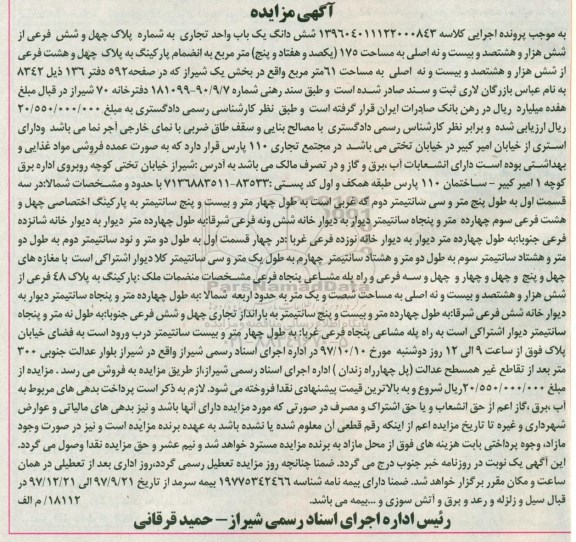 آگهی مزایده
به موجب پرونده اجرایی کلاسه ۱۳۹۶۰۴۰۱۱۱۲۲۰۰۰۸۴۳ شش دانگ یک باب واحد تجاری به شماره پلاک چهل و شش فرعی از
شش هزار و هشتصد و بیست و نه اصلی به مساحت ۱۷۵ (یکصد و هفتاد و پنج) متر مربع به انضمام پارکینگ به پلاک چهل و هشت فرعی
از شش هزار و هشتصد و بیست و نه اصلی به مساحت ۶۱متر مربع واقع در بخش یک شیراز که در صفحه۵۹۲ دفتر ۱۳۶ ذیل ۸۳۴۲
به نام عباس بازرگان لاری ثبت و سند صادر شده است و طبق سند رهنی شماره ۹۰/۹/۷-۱۸۱۰۹۹ دفترخانه ۷۰ شیراز در قبال مبلغ
هفده میلیارد ریال در رهن بانک صادرات ایران قرار گرفته است و طبق نظر کارشناس رسمی دادگستری به مبلغ ۲۰/۵۵۰/۰۰۰/۰۰۰
ریال ارزیابی شده و برابر نظر کارشناس رسمی دادگستری با مصالح بنایی و سقف طاق ضربی با نمای خارجی آجر نما می باشد ودارای
استری از خیابان امیر کبیر در خیابان تختی می باشد در مجتمع تجاری ۱۱۰ پارس قرار دارد که به صورت عمده فروشی مواد غذایی و
بهداشتی بوده است دارای انشعابات آب،برق و گاز و در تصرف مالک می باشد به آدرس :شیراز خیابان تختی کوچه روبروی اداره برق
کوچه ۱ امیر کبیر – ساختمان ۱۱۰ پارس طبقه همکف و اول کد پستی :۸۳۵۳۳-۷۱۳۶۸۸۳۵۱۱ با حدود و مشخصات شمالا:در سه
قسمت اول به طول پنج متر و سی سانتیمتر دوم که غربی است به طول چهار متر و بیست و پنج سانتیمتر به پارکینگ اختصاصی چهل و
هشت فرعی سوم چهارده متر و پنجاه سانتیمتر دیوار به دیوار خانه شش ونه فرعی شرقا:به طول چهارده متر دیوار به دیوار خانه شانزده
فرعی جنوبا:به طول چهارده متر دیوار به دیوار خانه نوزده فرعی غربا :در چهار قسمت اول به طول دو متر و نود سانتیمتر دوم به طول دو
متر و هشتاد سانتیمتر سوم به طول دو متر و هشتاد سانتیمتر چهارم به طول یک متر و سی سانتیمتر کلا دیوار اشتراکی است با مغازه های
چهل و پنج و چهل و چهار و چهل و سه فرعی و راه پله مشاعی پنجاه فرعی مشخصات منضمات ملک :پارکینگ به پلاک ۴۸ فرعی از
شش هزار و هشتصد و بیست و نه اصلی به مساحت شصت و یک متر به حدود اربعه شمالا :به طول چهارده متر و پنجاه سانتیمتر دیوار به
دیوار خانه شش فرعی شرقا:به طول چهارده متر و بیست و پنج سانتیمتر به بارانداز تجاری چهل و شش فرعی جنوبا:به طول نه متر و پنجاه
سانتیمتر دیوار اشتراکی است به راه پله مشاعی پنجاه فرعی غربا: به طول چهار متر و بیست سانتیمتر درب ورود است به فضای خیابان
پلاک فوق از ساعت ۹ الی ۱۲ روز دوشنبه مورخ ۹۷/۱۰/۱۰ در اداره اجرای اسناد رسمی شیراز واقع در شیراز بلوار عدالت جنوبی ۳۰۰
متر بعد از تقاطع غیر همسطح عدالت (پل چهارراه زندان ) اداره اجرای اسناد رسمی شیراز،از طریق مزایده به فروش می رسد . مزایده از
مبلغ ۲۰/۵۵۰/۰۰۰/۰۰۰ریال شروع و به بالاترین قیمت پیشنهادی نقدا فروخته می شود. لازم به ذکر است پرداخت بدهی های مربوط به
آب ،برق ،گاز اعم از حق انشعاب و یا حق اشتراک و مصرف در صورتی که مورد مزایده دارای آنها باشد و نیز بدهی های مالیاتی و عوارض
شهرداری و غیره تا تاریخ مزایده اعم از اینکه رقم قطعی آن معلوم شده یا نشده باشد به عهده برنده مزایده است و نیز در صورت وجود
مازاد، وجوه پرداختی بابت هزینه های فوق از محل مازاد به برنده مزایده مسترد خواهد شد و نیم عشر و حق مزایده نقدا وصول می گردد.
این آگهی یک نوبت در روزنامه خبر جنوب درج می گردد. ضمنا چنانچه روز مزایده تعطیل رسمی گردد،روز اداری بعد از تعطیلی در همان
ساعت و مکان مقرر برگزار خواهد شد. ضمنا دارای بیمه نامه شناسه ۱۹۷۷۵۳۴۲۴۶۶ بیمه سرمد از تاریخ ۹۷/۹/۲۱ الی ۹۷/۱۲/۲۱ در
قبال سیل و زلزله و رعد و برق و آتش سوزی و ...بیمه می باشد. ۱۸۱۱۲/ م الف
رئیس اداره اجرای اسناد رسمی شیراز – حمید قرقانی